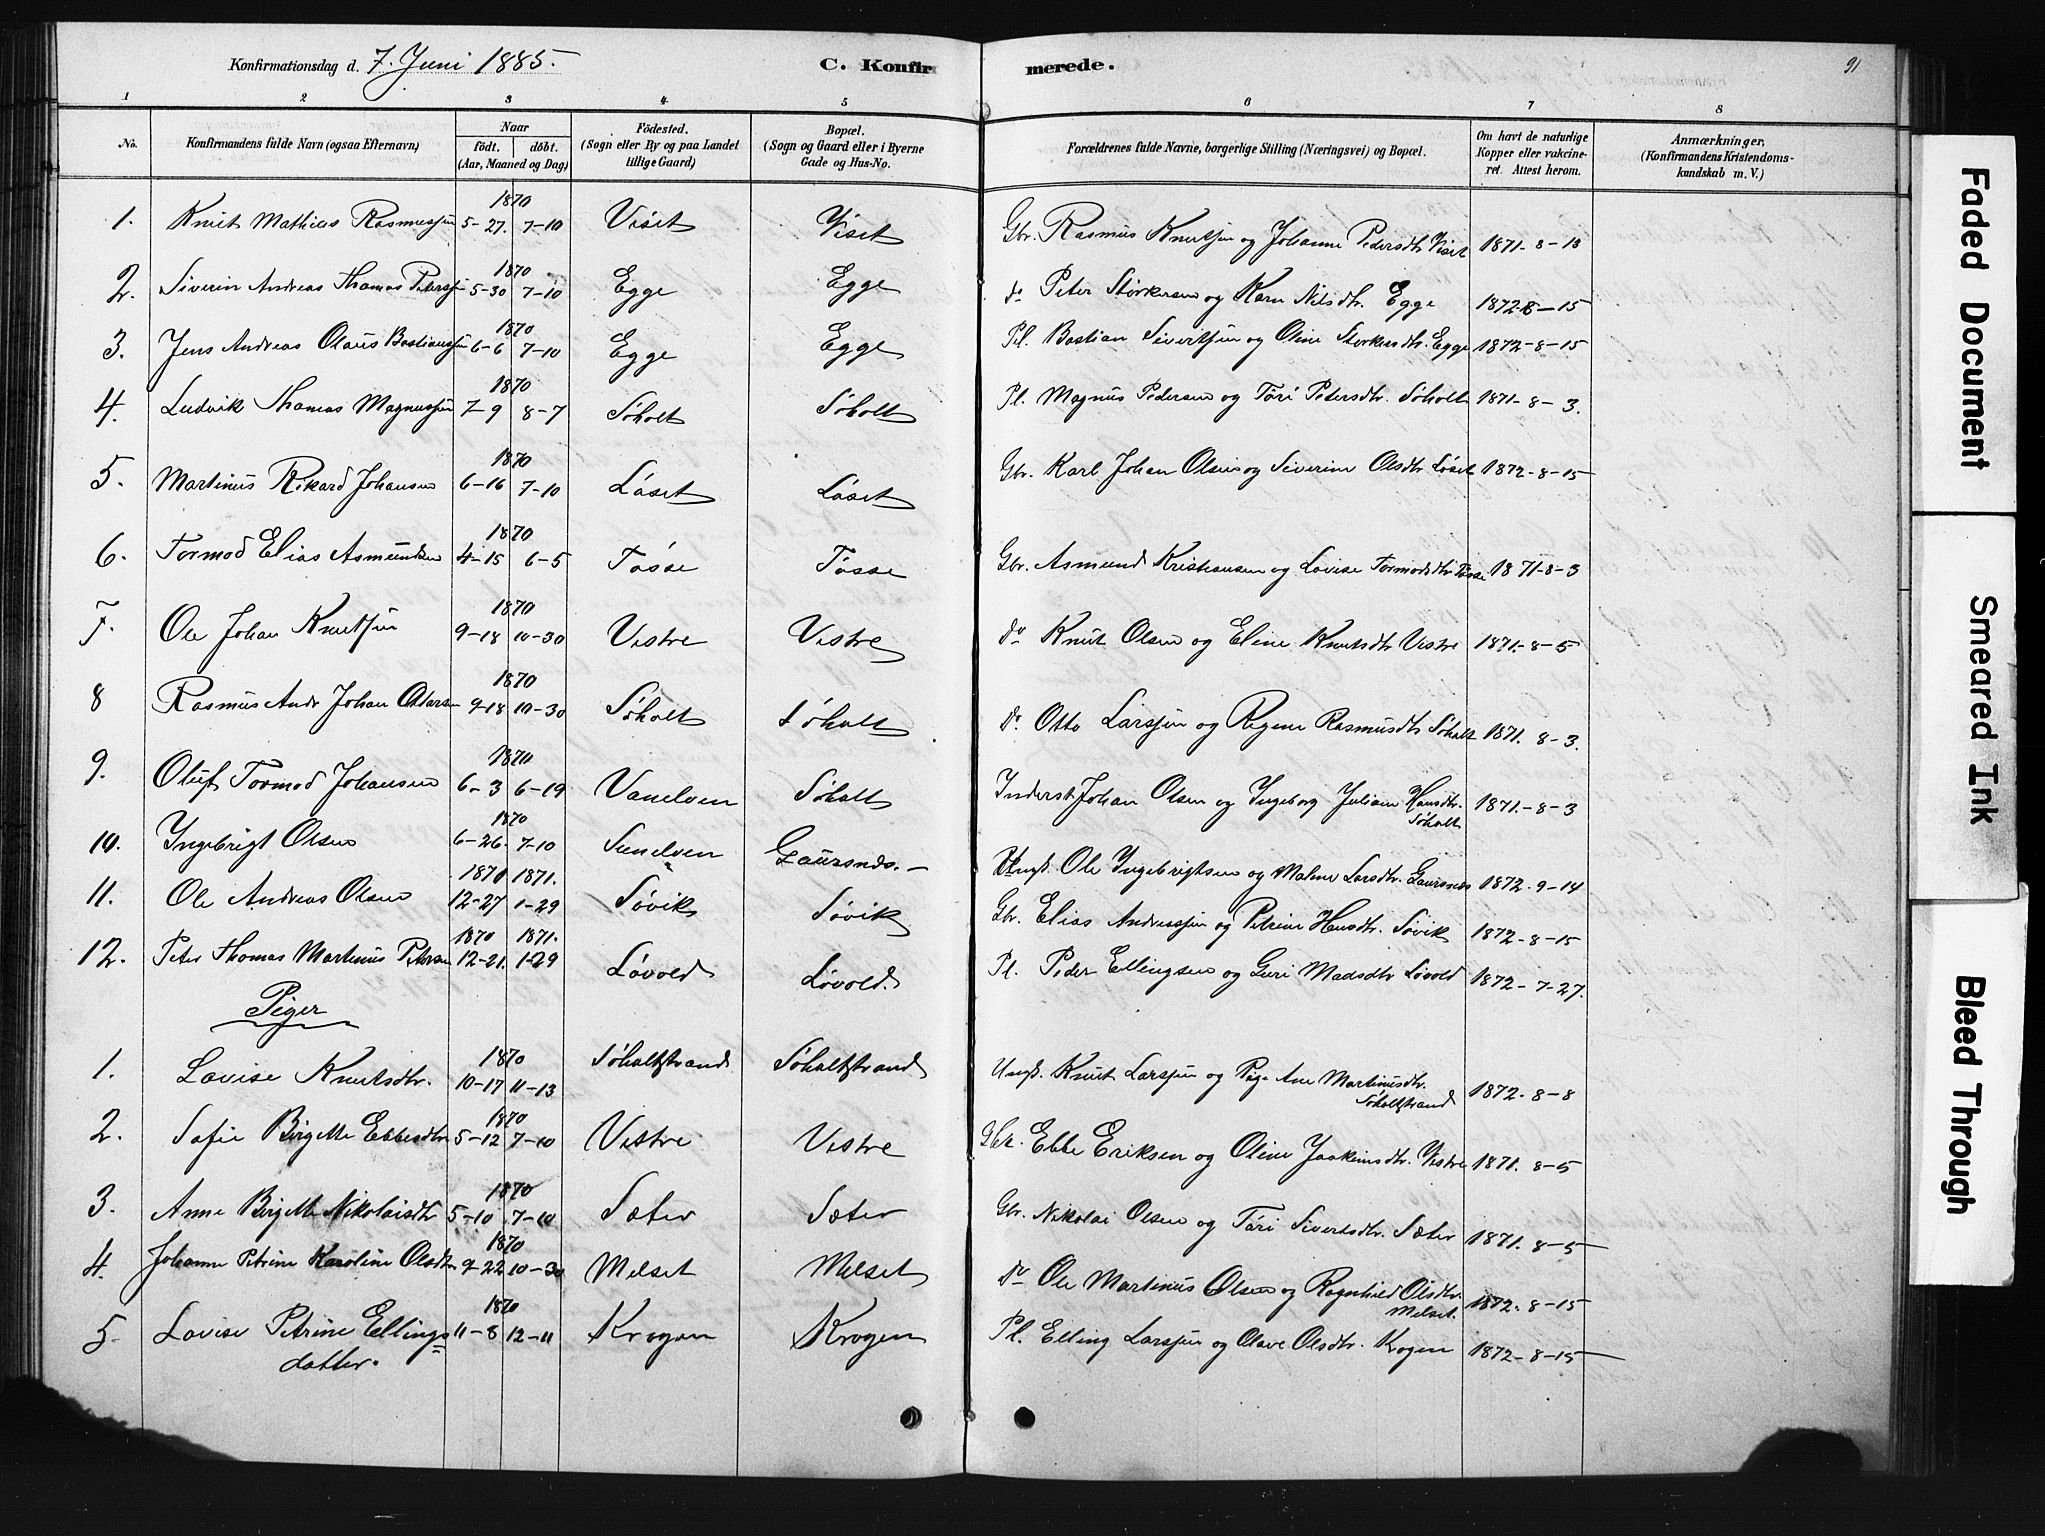 Konfirmationsdag d. 7. Juni 1885. C. Konfir merede. 91
1 2 3 4 5 6 7 8
No. Konfirmandens fulde Navn (ogsaa Efternavn) Naar født. døbt. (Aar, Maaned og Dag) Fødested. (Sogn eller By og paa Landet tillige Gaard) Bopæl. (Sogn og Gaard eller i Byerne Gade og Hus-No. Forældrenes fulde Navne, borgerlige Stilling (Næringsvei) og Bopæl. Om havt de naturlige Kopper eller vakcineret. Attest herom. Anmærkninger, (Konfirmandens Kristendomskundskab m. V.)
1. Knut Mathias Rasmussjun 1870 5-27. 7-10 Viset Viset Gbr. Rasmus Knutsjun og Johanne Pedersdtr Viset 1871-8-18
2. Siverin Andreas Thomas Petersjn 1870 5-30 7-10 Egge Egge do Peter Størkersen og Karn Nilsdtr. Egge 1872-8-15
3. Jens Andreas Olaus Bastiansjn 1870 6-6 7-10 Egge Egge Pl. Bastian Sivertsjun og Oline Størkersdtr. Egge 1872-8-15
4. Ludvik Thomas Magnussjun 1870 7-9 8-7 Søholt Søholt Pl. Magnus Pedersen og Tøri Petersdtr. Søholt 1871-8-3.
5. Martinus Rikard Johansen 1870 6-16 7-10 Løset Løset Gbr. Karl Johan Olsen og Siverine Olsdtr. Løset 1872-8-15
6. Tormod Elias Asmundsen 1870 4-15 6-5 Tøsse Tøsse Gbr. Asmund Kristiansen og Lovise Tormodsdtr Tøsse 1871-8-3
7. Ole Johan Knutsjun 1870 9-18 10-30 Vestre Vestre do Knut Olsen og Eline Knutsdtr Vestre 1871.-8-5
8 Rasmus Andr Johan Ottarsen 1870 9-18 10-30 Søholt Søholt do Otto Larssjun og Regine Rasmusdtr Søholt 1871.8-3.
9. Oluf Tormod Johansen 1870 6-3 6-19 Vanelven Søholt Inderst Johan Olsen og Ingeborg Juliane Hansdtr. Søholt 1871.-8-3
10. Ingebrigt Olsen 1870 6-26. 7-10 Sunelven Gaursnes.- Ungk. Ole Ingebrigtsen og Malene Larsdtr. Gaursnes 1872.9-14
11. Ole Andreas Olsen 1870 12-27 1871. 1-29 Søvik Søvik Gbr. Elias Andreassjun og Petrine Hansdtr. Søvik 1872-8-15
12. Peter Thomas Martinus Petersen 1870 12-21. 1871. 1-29 Løvold Løvold. Pl. Peder Ellingsen og Guri Madsdtr Løvold 1872-7-27.
Piger
1. Lovise Knutsdtr. 1870 10-17 11-13 Søholtstrand Søholtstrand Ungk. Knut Larssjun og Pige Ane Martinusdtr. Søholtstrand 1872.8-8
2. Sofie Birgitte Ebbesdtr 1870 5-12 7-10 Vestre Vestre Gbr. Ebbe Eriksen og Oline Joakimsdtr. Vestre 1871.8-5
3. Anne Birgitte Nikolaisdtr 1870 5-10 7-10 Sæter Sæter Gbr. Nikolai Olsen og Tøri Sivertsdtr. Sæter 1871.8-5
4. Johanne Petrine Karoline Olsdtr 1870 9-22 10-30 Melset Melset do Ole Martinus Olsen og Ragnhild Olsdtr. Melset. 1872.8-15
5. Lovise Petrine Ellings= datter. 1870 11-8 12-11 Krogen Krogen Pl. Elling Larssjun og Olave Olsdtr. Krogen 1872-8-15
Faded Document
Smeared Ink
Bleed Through